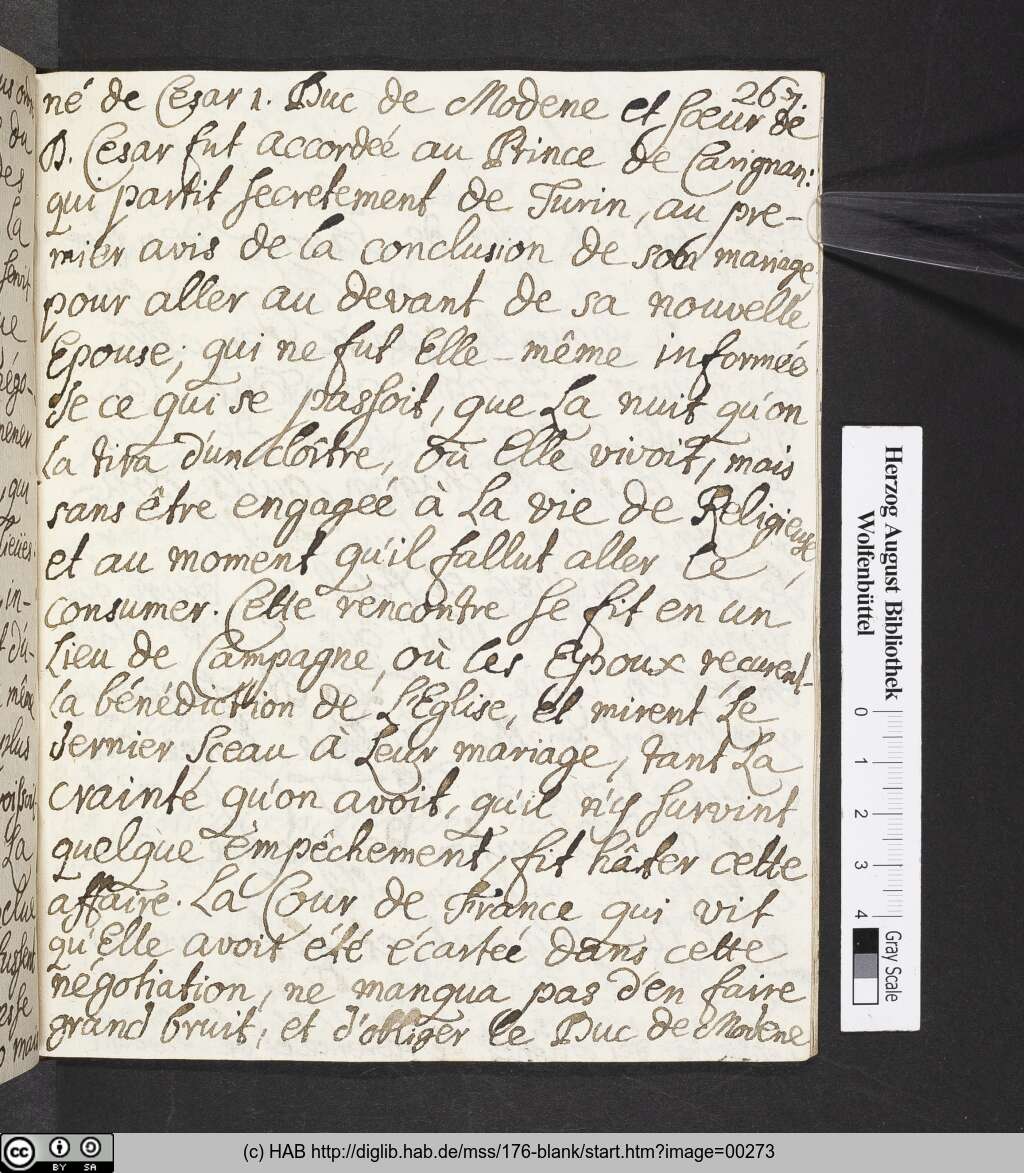 267.
né de Cesar 1. Duc de Modene et Sœur de
D. Cesar fut accordeé au Prince de Carignan:
qui partit secretement de Turin, au pre-
mier avis de la conclusion de son mariage
pour aller au devant de sa nouvelle
Epouse; qui ne fut Elle-même informeé
de ce qui se passoit, que la nuit qu'on
la tira d'un cloître, où Elle vivoit, mais
sans être engageé à la vie de Religieuse,
et au moment qu'il fallut aller le
consumer. Cette rencontre se fit en un
Lieu de Campagne, où les Epoux reçurent
la bénédiction de l'Eglise, et mirent le
dernier sceau à leur mariage, tant la
crainte qu'on avoit, qu'il n'y survint
quelque empêchement, fit hâter cette
affaire. La Cour de France qui vit
qu'Elle avoit été écarteé dans cette
négotiation, ne manqua pas d'en faire
grand bruit, et d'obliger le Duc de Modene
Herzog August Bibliothek
Wolfenbüttel
0 1 2 3 4
Gray Scale
(c) HAB http://diglib.hab.de/mss/176-blank/start.htm?image=00273
cc BY SA